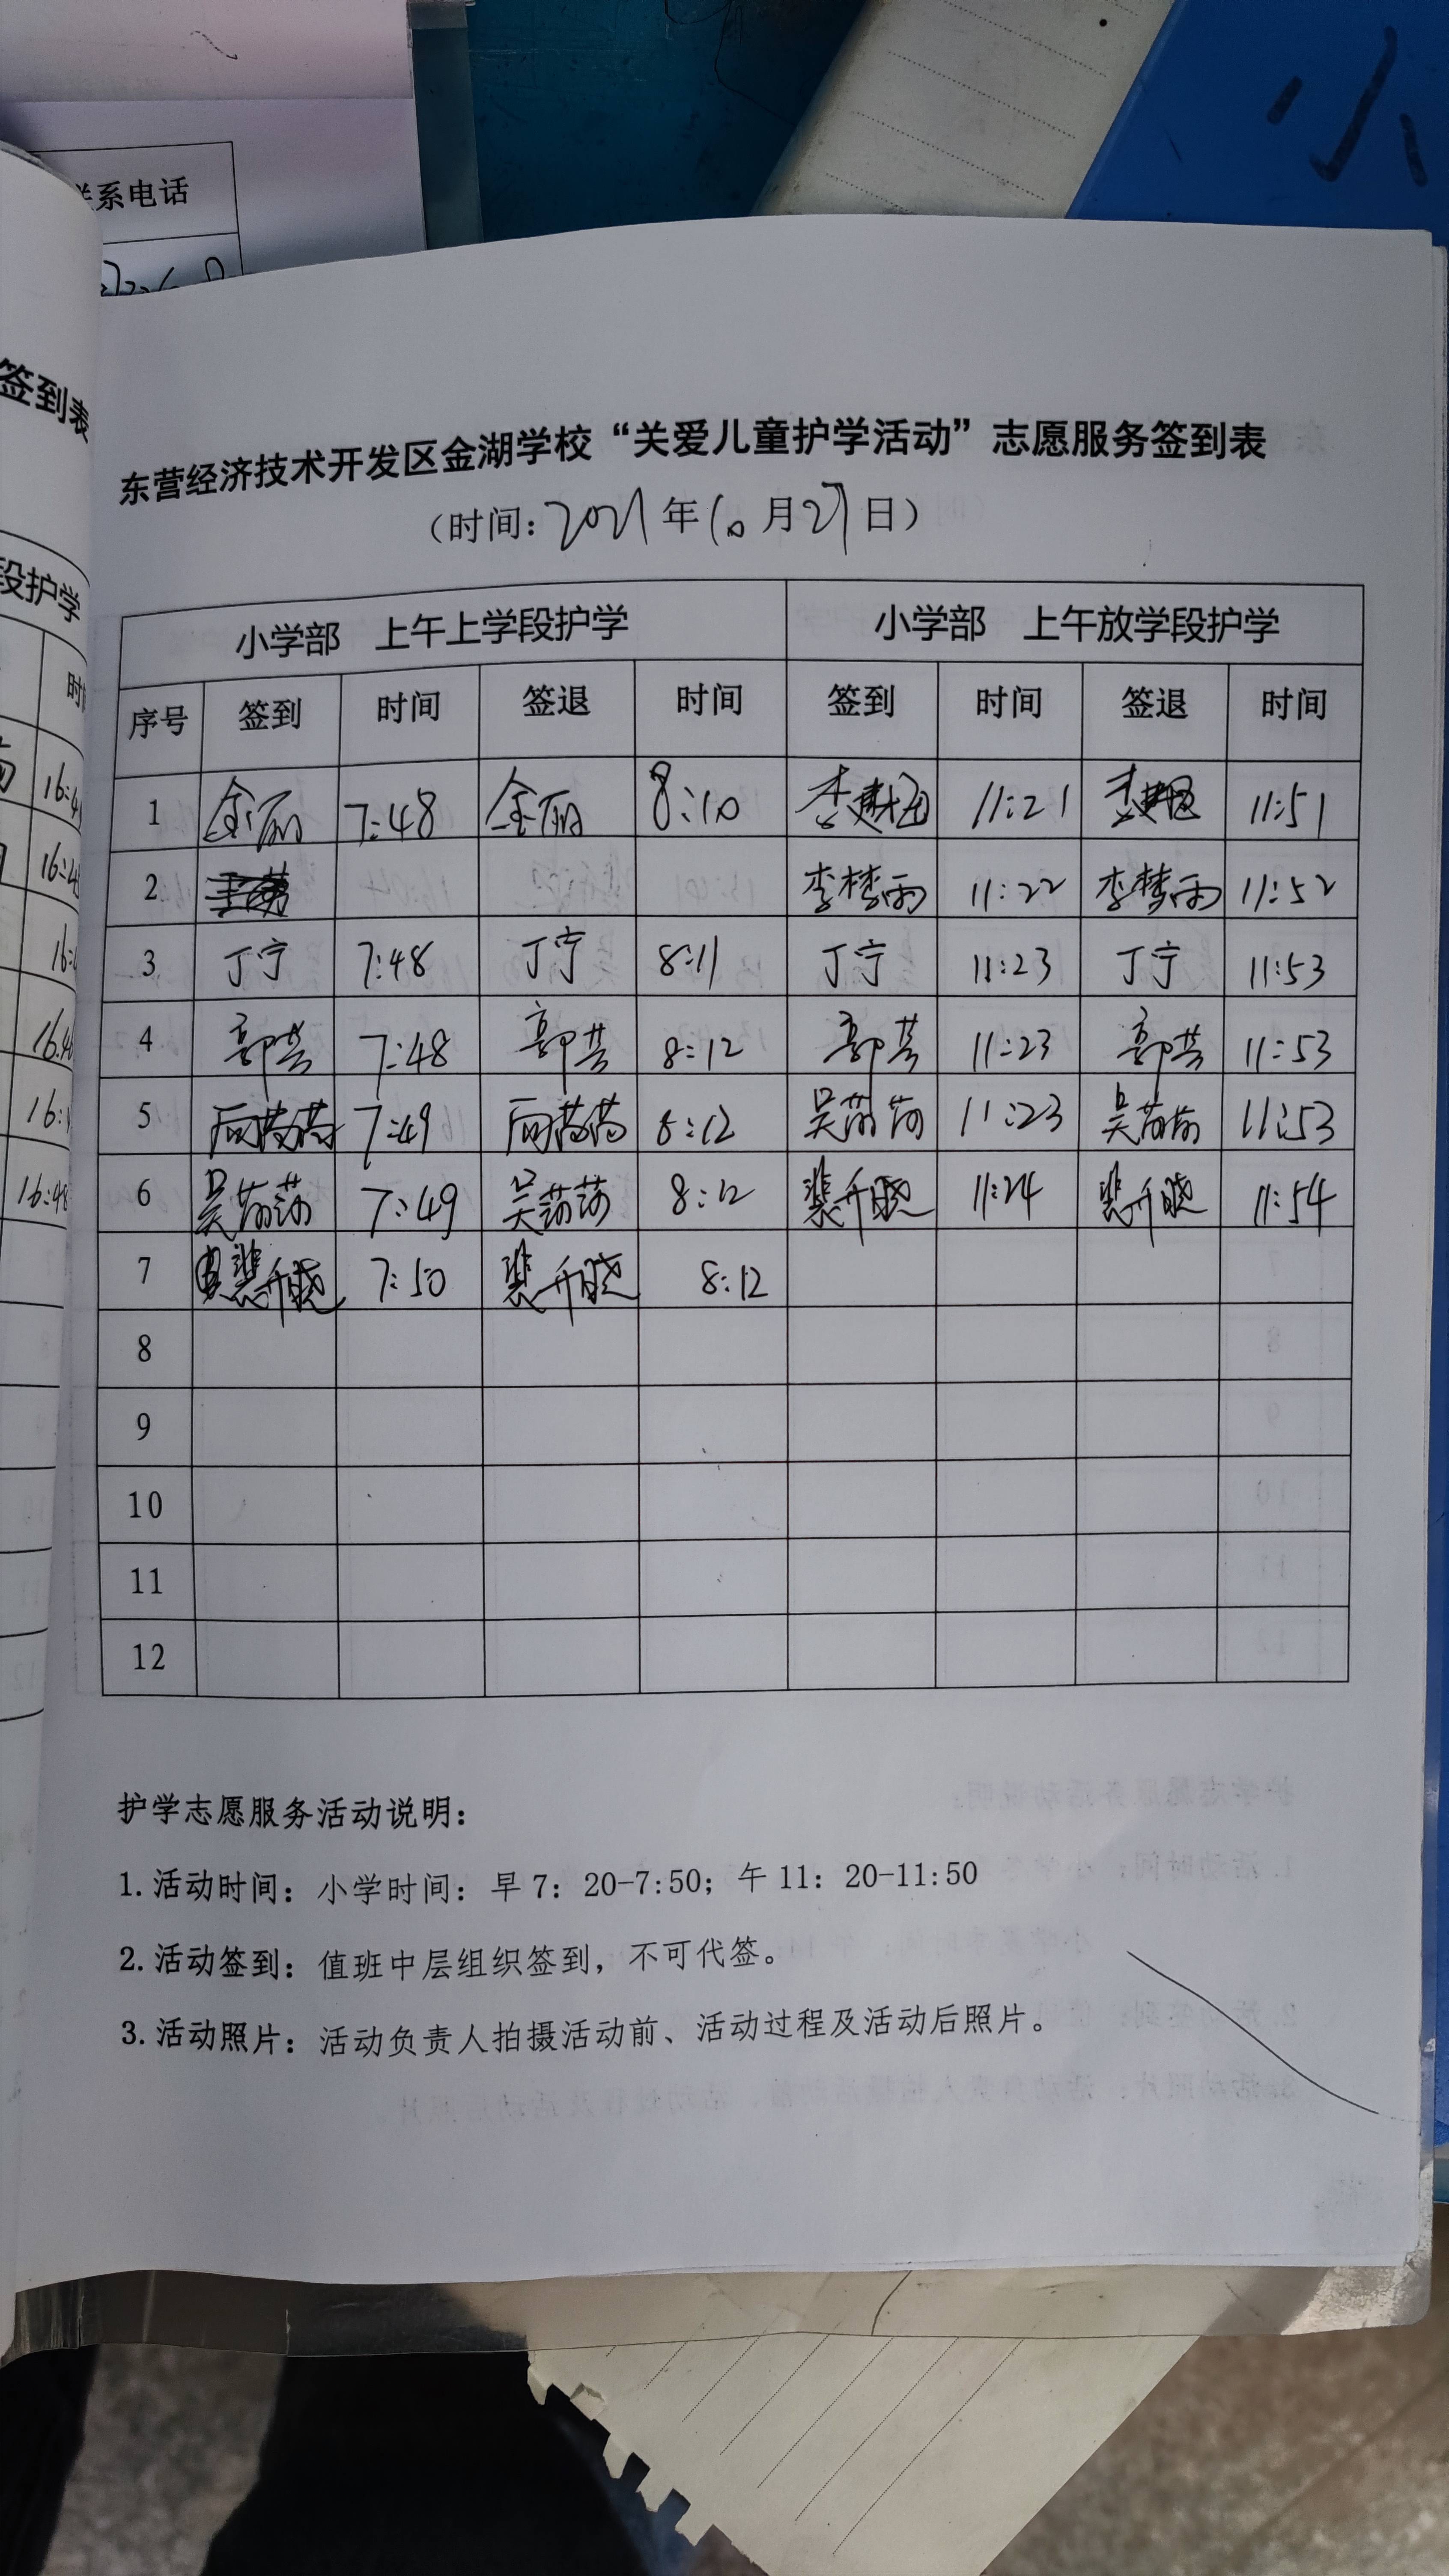 系电话
小
签到表
段护学
时
16:4
16:4
16:
16:4
16:
16:48
东营经济技术开发区金湖学校“关爱儿童护学活动”志愿服务签到表
（时间：2021年10月27日）
小学部 上午上学段护学 小学部 上午放学段护学
序号 签到 时间 签退 时间 签到 时间 签退 时间
1 金丽 7:48 金丽 8:10 李 11:21 李 11:51
2 李梦雨 11:22 李梦雨 11:52
3 丁宁 7:48 丁宁 8:11 丁宁 11:23 丁宁 11:53
4 郭芸 7:48 郭芸 8:12 郭芸 11:23 郭芸 11:53
5 7:49 8:12 吴莎莎 11:23 吴莎莎 11:53
6 吴莎莎 7:49 吴莎莎 8:12 裴升晓 11:24 裴升晓 11:54
7 裴升晓 7:50 裴升晓 8:12
8
9
10
11
12
护学志愿服务活动说明：
1.活动时间：小学时间：早7：20-7:50；午11：20-11:50
2.活动签到：值班中层组织签到，不可代签。
3.活动照片：活动负责人拍摄活动前、活动过程及活动后照片。